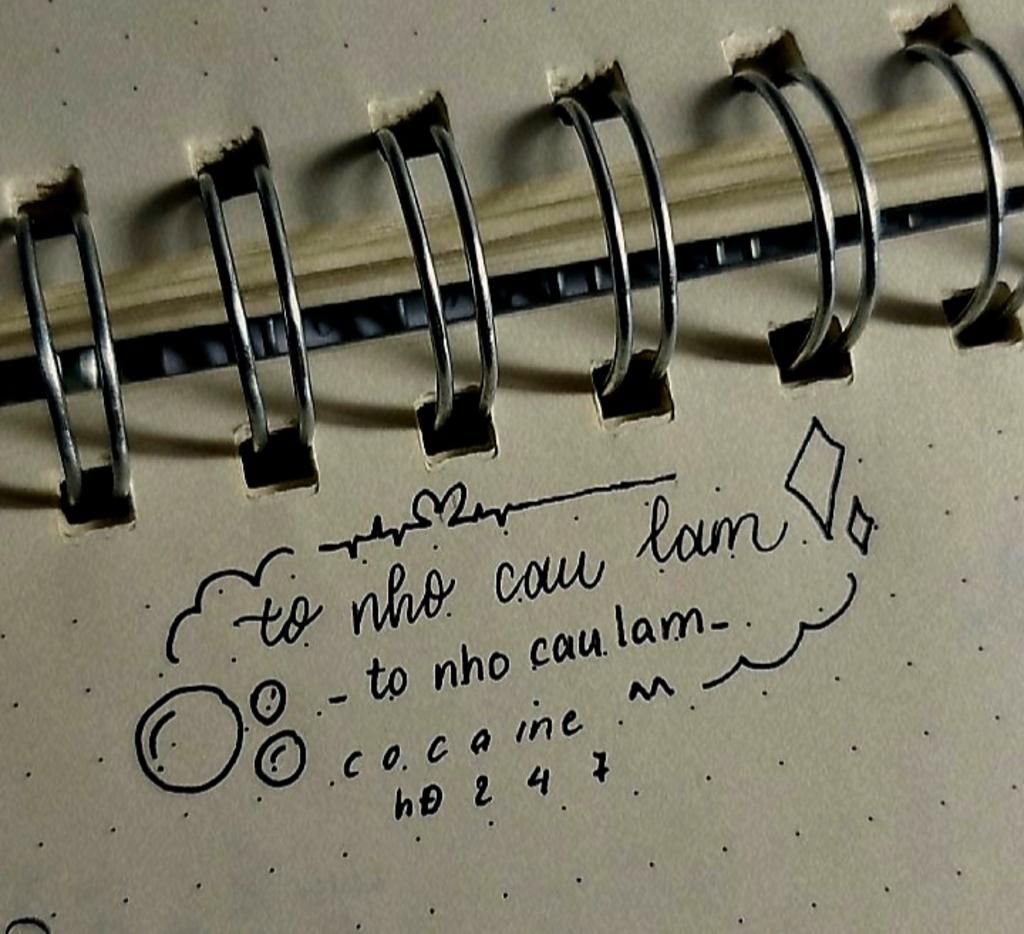 to nho cau lam
- to nho cau lam -
cocaine
hĐ 2 4 7